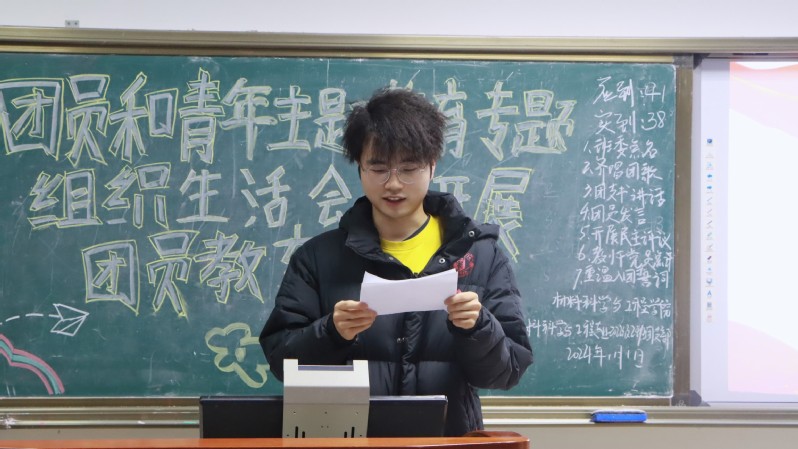 团员和青年主题 育专题
组织生活会 开展
团员教
应到:41
实到:38
1.班委点名
2.齐唱团歌
3.团支书讲话
4.团员发言
5.开展民主评议
6.教师党员
7.重温入团誓词
材料科学与工程学院
材料科学与工程
2024年1月1日